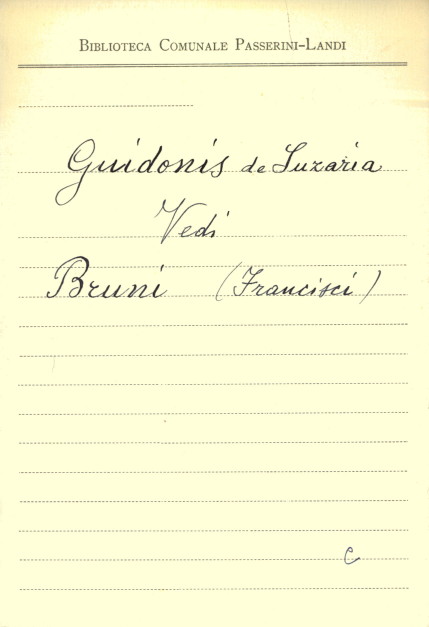 BIBLIOTECA COMUNALE PASSERINI-LANDI
Guidonis de Suzaria
Vedi
Bruni (Francisci)
C